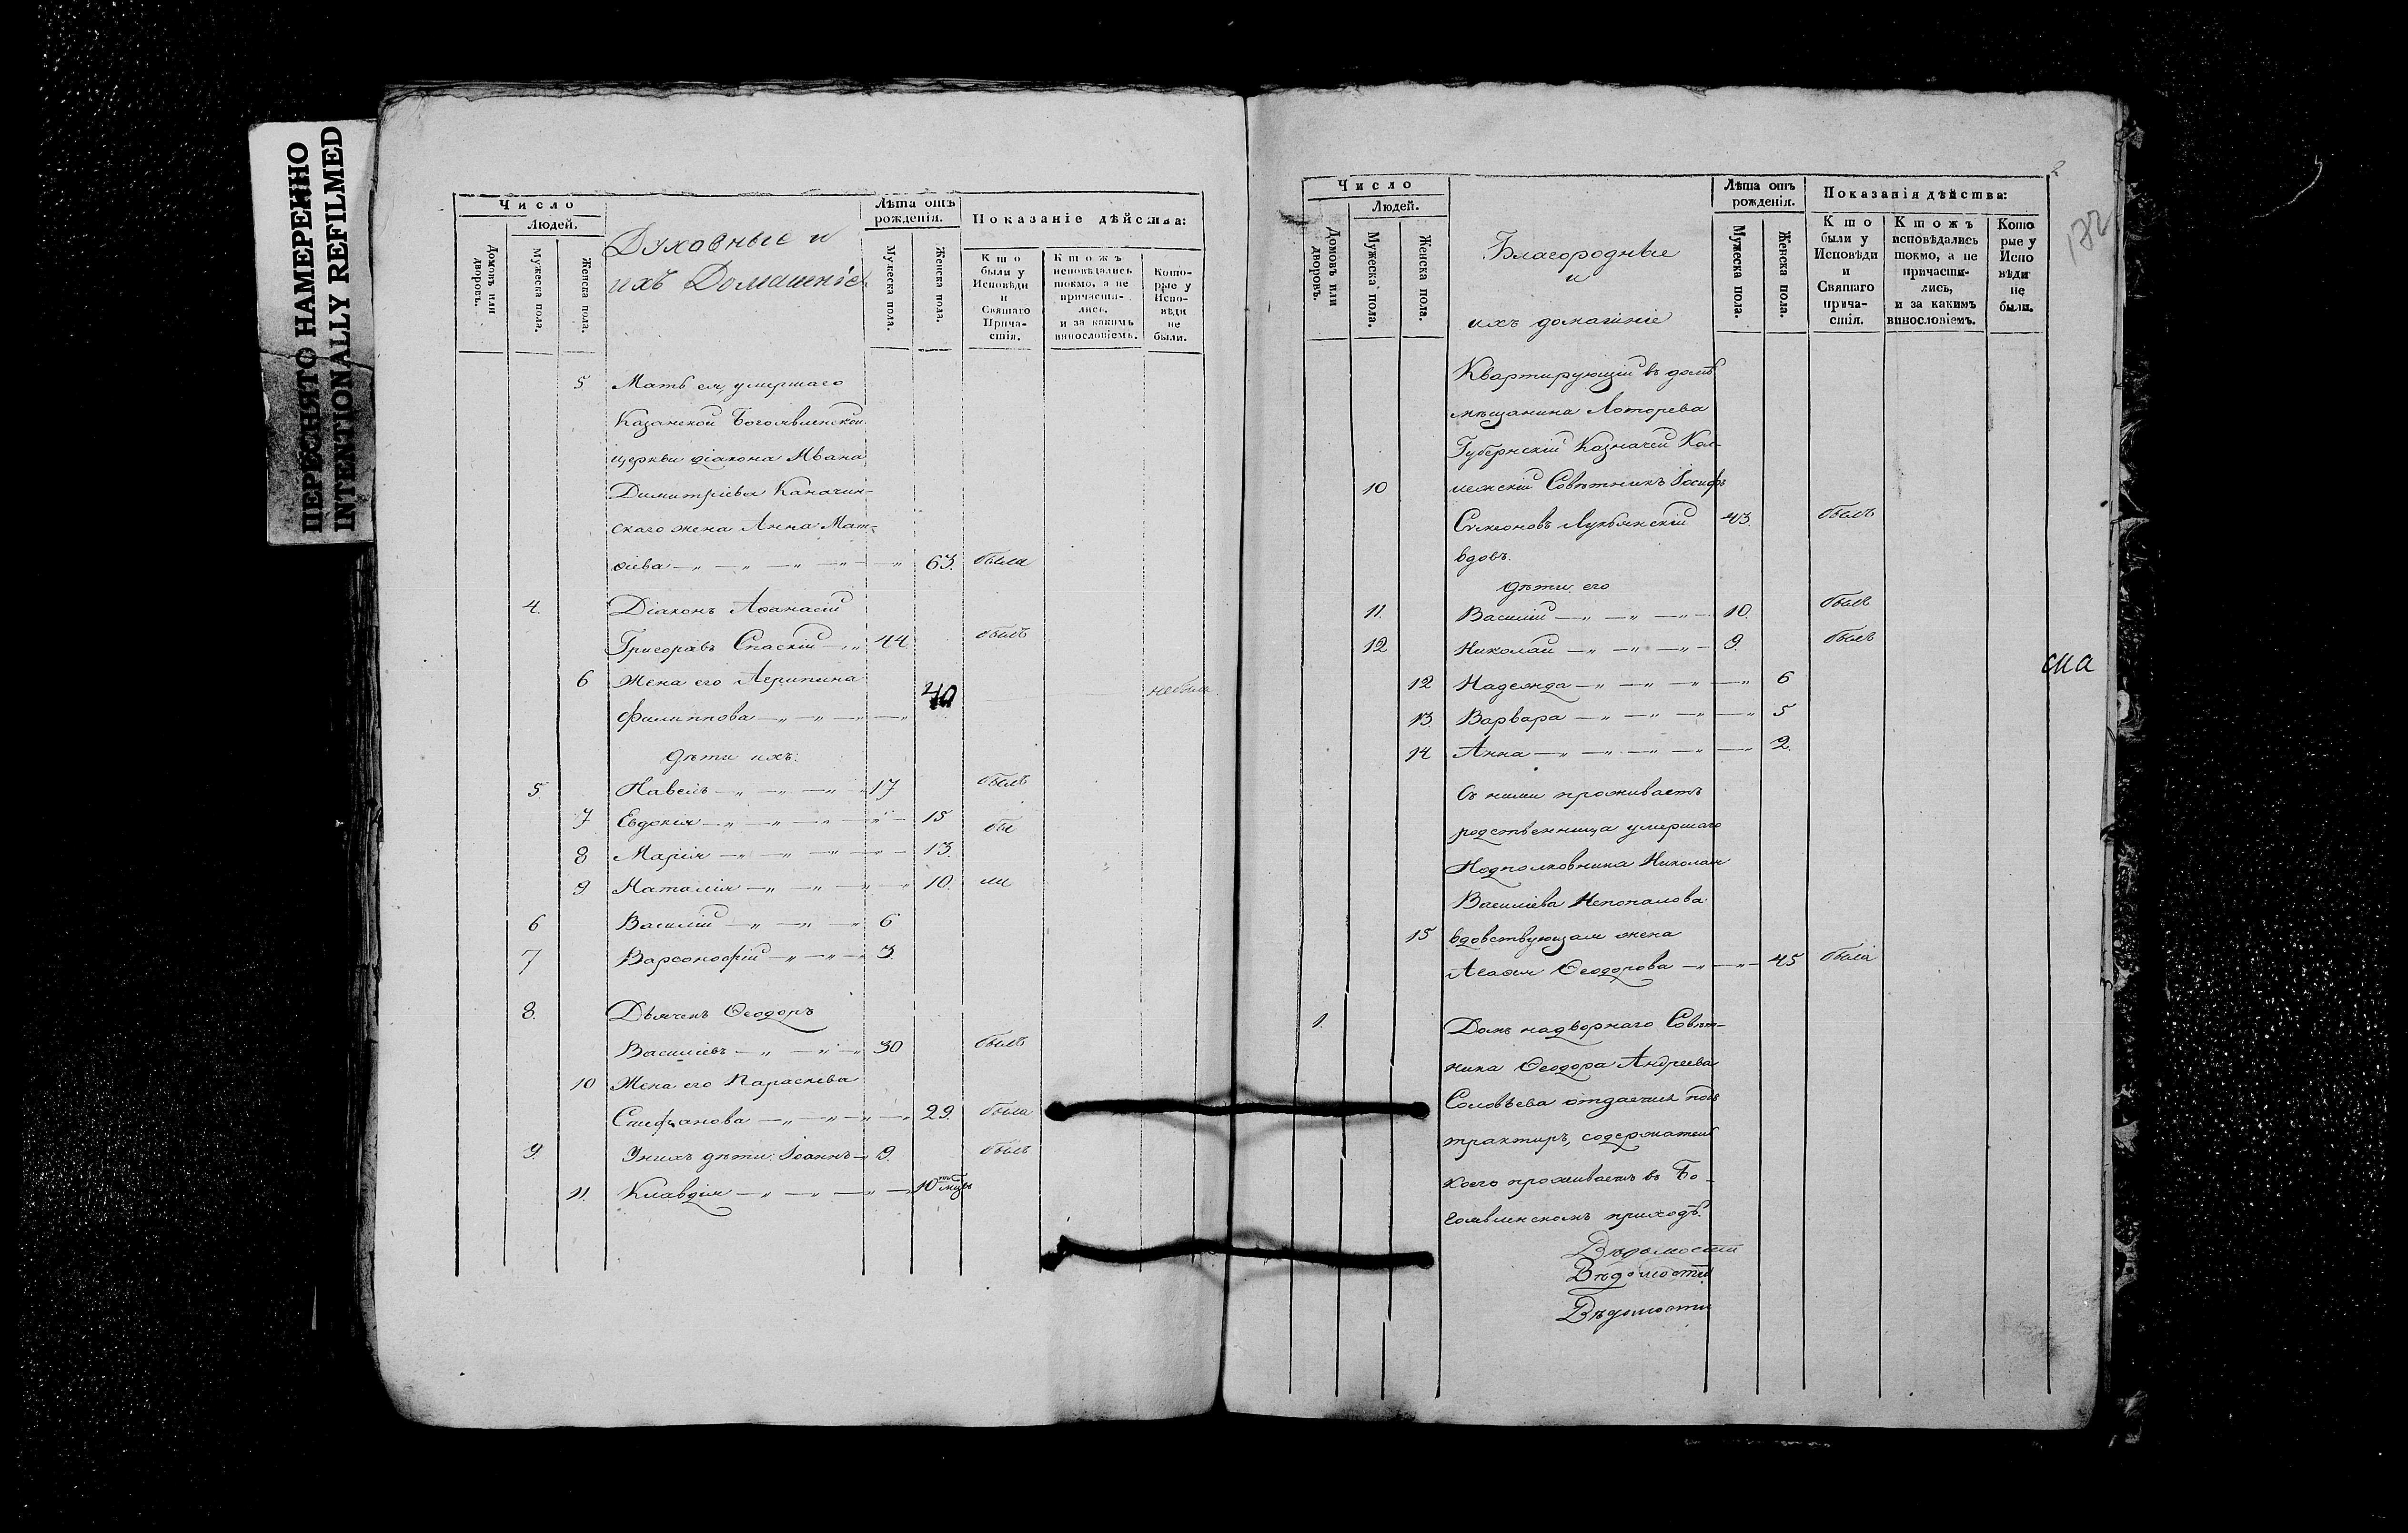 ПЕРЕСНЯТО НАМЕРЕННО
INTENTIONALLY REFILMED
Число
Людей.
Домовъ или дворовъ.
Мужеска пола.
Женска пола.
Духовные и
ихъ Домашніе
Лѣта отъ
рожденія.
Мужеска пола.
Женска пола.
Показаніе дѣйства:
Кто
были у
Исповѣди
и
Святаго
Прича-
стія.
Ктожъ
исповѣдались
токмо, а не
причасти-
лись,
и за какимъ
винословіемъ.
Кото-
рые у
Испо-
вѣди
не
были.
5 Мать ея, умершаго
Казанской Богоявленской
церкви діакона Ивана
Димитріева Каначин-
скаго жена Анна Мат-
ѳіева 63. была
4. Діаконъ Аѳанасій
Григорьевъ Спаскій 44 былъ
6 Жена его Агрипина
Филиппова 40 не была
дѣти ихъ:
5 Павелъ 17 былъ
7 Евдокія 15 бы
8 Марія 13.
9 Наталія 10. ли
6 Василій 6
7 Варсонофій 3.
8. Дьячекъ Ѳеодоръ
Василіевъ 30 былъ
10 Жена его Параскева
Стефанова 29. была
9. У нихъ дѣти: Іоаннъ 9. былъ
11. Клавдія 10 мцъ
Число
Людей.
Домовъ или дворовъ.
Мужеска пола.
Женска пола.
Благородные
и
ихъ домашніе
Лѣта отъ
рожденія.
Мужеска пола.
Женска пола.
Показанія дѣйства:
Кто
были у
Исповѣди
и
Святаго
прича-
стія.
Ктожъ
исповѣдались
токмо, а не
причасти-
лись,
и за какимъ
винословіемъ.
Кото
рые у
Испо
вѣди
не
были.
2
Квартирующій въ домѣ
мѣщанина Лоторева
Губернскій Казначей Кол-
10 лежскій Совѣтникъ Іосифъ
Симеоновъ Лукьянскій 43. былъ
вдовъ.
дѣти его
11. Василій 10. былъ
12 Николай 9. былъ
12 Надежда 6
13. Варвара 5
14 Анна 2.
Съ ними проживаетъ
родственница умершаго
Подполковника Николая
Василіева
15 вдовствующая жена
Агаѳія Ѳеодорова 45 была
1. Домъ надворнаго Совѣт-
ника Ѳеодора Андреева
Соловьева отдается подъ
трактиръ, содержатель
коего проживаетъ въ Бо-
гоявленскомъ приходѣ.
Вѣдомости
Вѣдомости
Вѣдомости